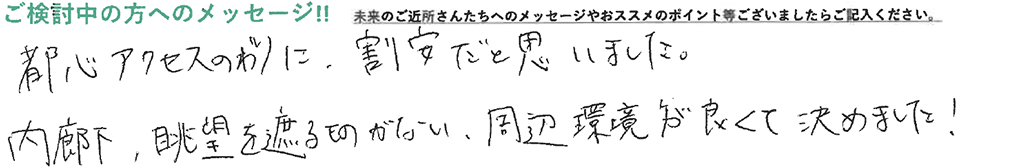 ご検討中の方へのメッセージ!! 未来のご近所さんたちへのメッセージやおススメのポイント等ございましたらご記入ください。
都心アクセスのわりに、割安だと思いました。
内廊下、眺望を遮るものがない、周辺環境が良くて決めました!